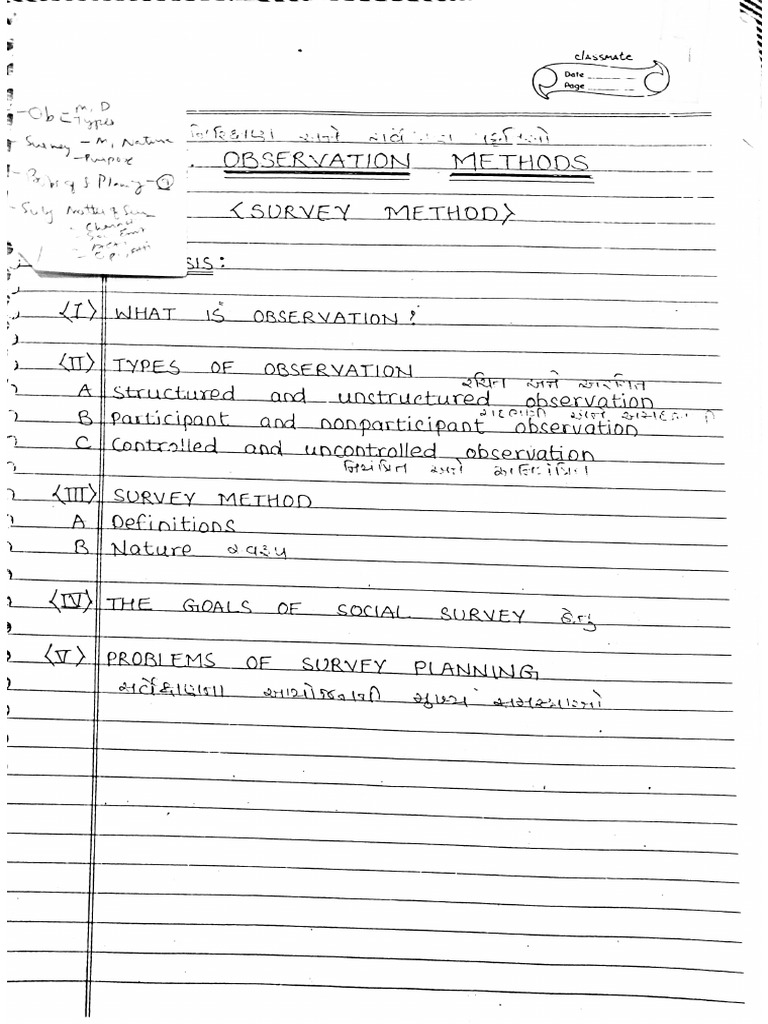 classmate
Date
Page
- Ob = M, D
Types
Survey - M, Nature
- Purpose
નિરિક્ષણ અને સર્વેક્ષણ પદ્ધતિઓ
OBSERVATION METHODS
<SURVEY METHOD>
SIS:
<I> WHAT IS OBSERVATION?
<II> TYPES OF OBSERVATION
રચિત અને અરચિત
A Structured and unstructured observation
B Participant and nonparticipant observation
C Controlled and uncontrolled observation
નિયંત્રિત અને અનિયંત્રિત
<III> SURVEY METHOD
A Definitions
B Nature સ્વરૂપ
<IV> THE GOALS OF SOCIAL SURVEY હેતુ
<V> PROBLEMS OF SURVEY PLANNING
સર્વેક્ષણના આયોજનની મુખ્ય સમસ્યાઓ